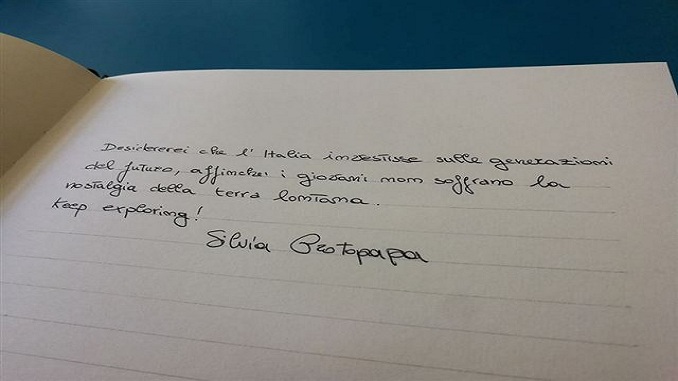 Desidererei che l'Italia investisse sulle generazioni
del futuro, affinchei i giovani non soffrano la
nostalgia della terra lontana.
Keep exploring!
Silvia Protopapa